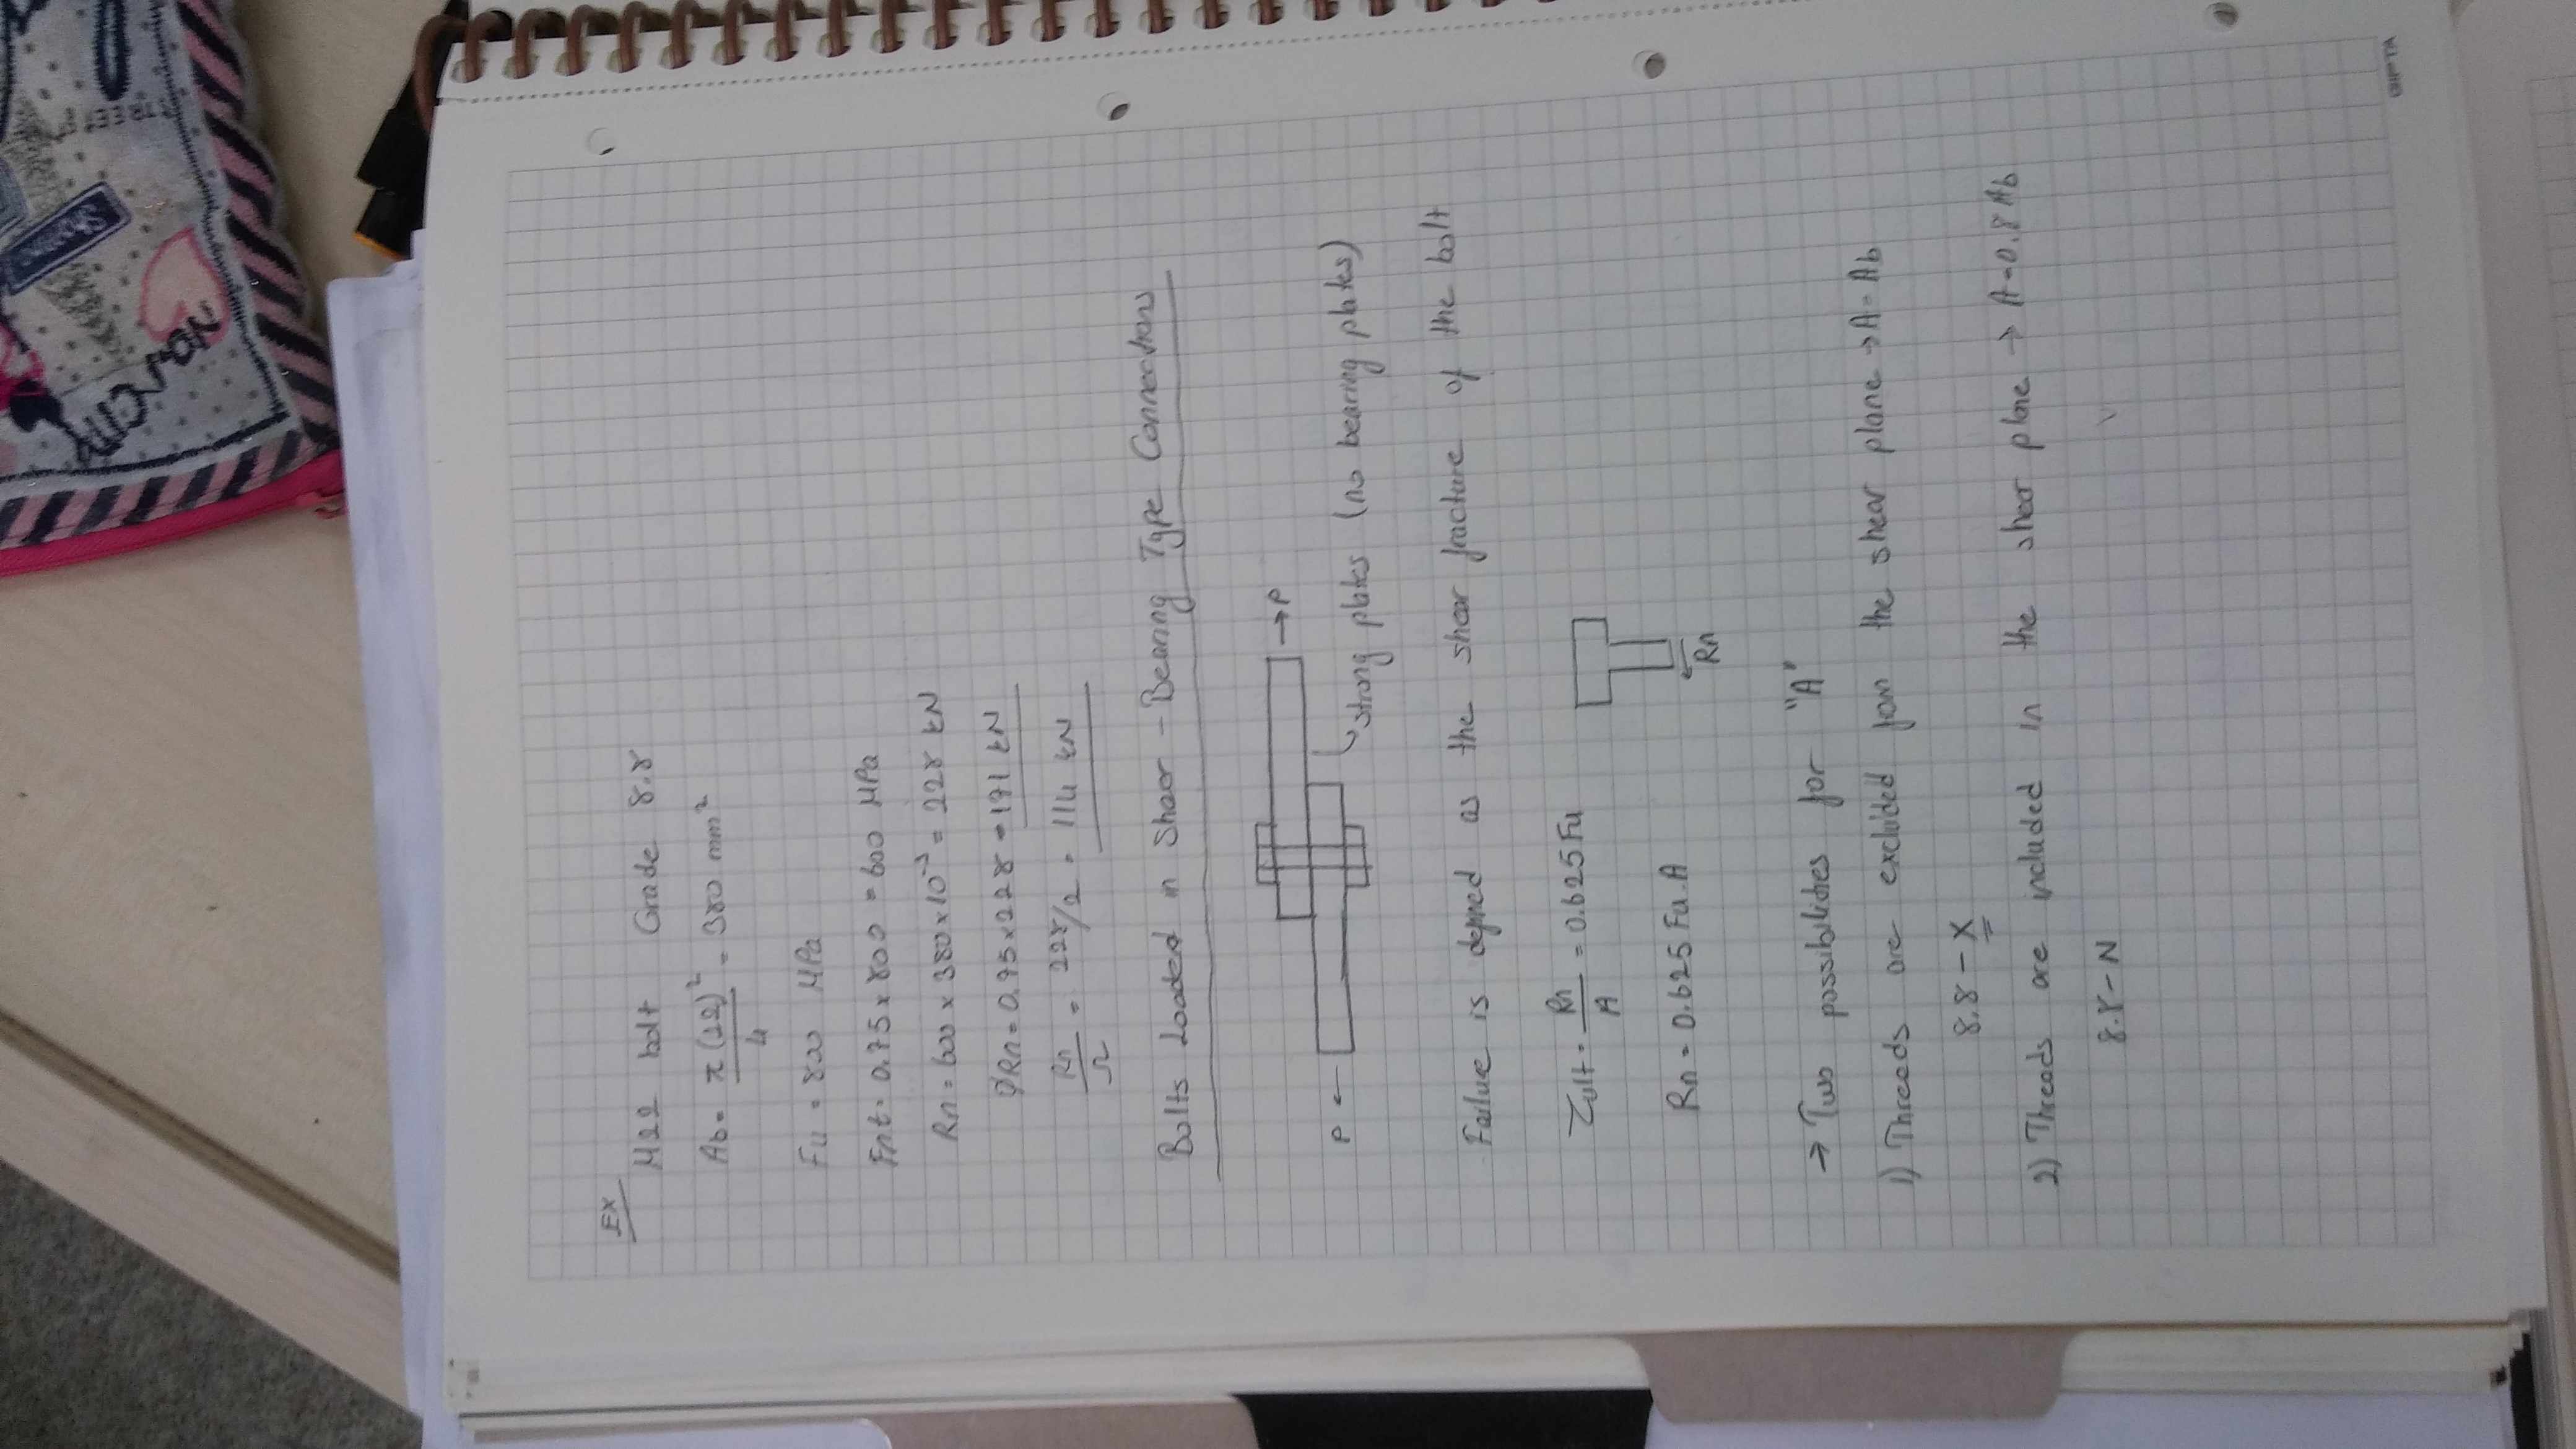 STREET
EX
M22 bolt Grade 8.8
Ab = π(22)² / 4 = 380 mm²
Fu = 800 MPa
Fnt = 0.75 x 800 = 600 MPa
Rn = 600 x 380 x 10⁻³ = 228 kN
ϕRn = 0.75 x 228 = 171 kN
Rn / Ω = 228/2 = 114 kN
Bolts Loaded in Shear - Bearing Type Connections
→P
P ←
strong plates (no bearing plates)
Failure is defined as the shear fracture of the bolt
τult = Rn / A = 0.625 Fu
Rn = 0.625 Fu.A
Rn
→ Two possibilities for "A"
1) Threeds are excluded from the shear plane → A = Ab
8.8 - X
2) Threads are included in the shear plane → A = 0.8 Ab
8.8 - N